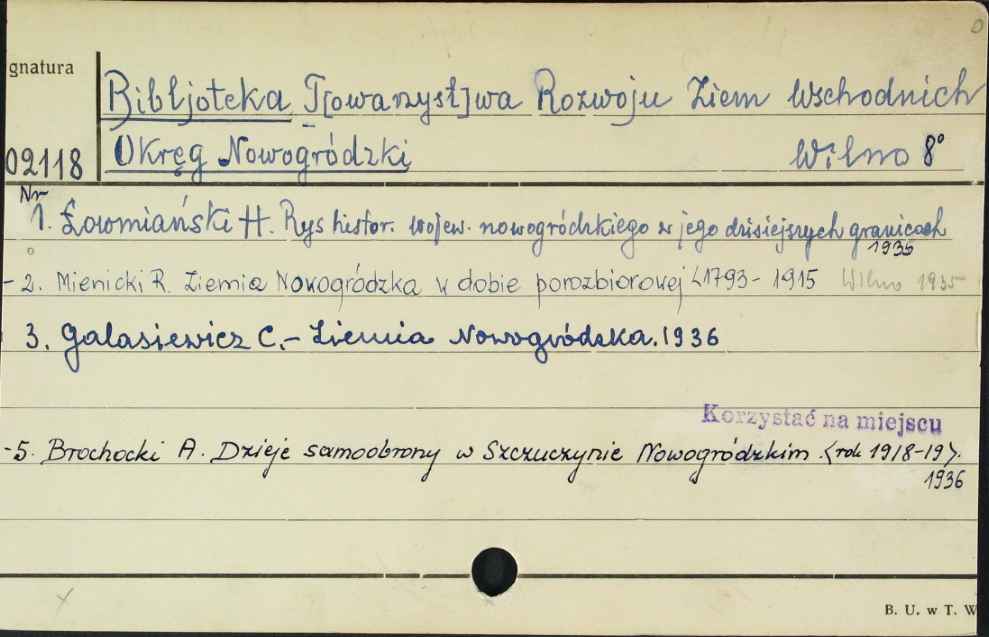 gnatura
Bibljoteka T[owarzyst]wa Rozwoju Ziem Wschodnich
Okręg Nowogródzki Wilno 8°
02118
Nr
1. Łowmiański H. Rys histor. wojew. nowogródzkiego w jego dzisiejszych granicach
1935
- 2. Mienicki R. Ziemia Nowogródzka w dobie porozbiorowej <1793 - 1915 Wilno 1935
3. Galasiewicz C. - Ziemia Nowogródzka. 1936
Korzystać na miejscu
- 5. Brochocki A. Dzieje samoobrony w Szczuczynie Nowogródzkim <rok 1918-19>.
1936
B. U. w T. W